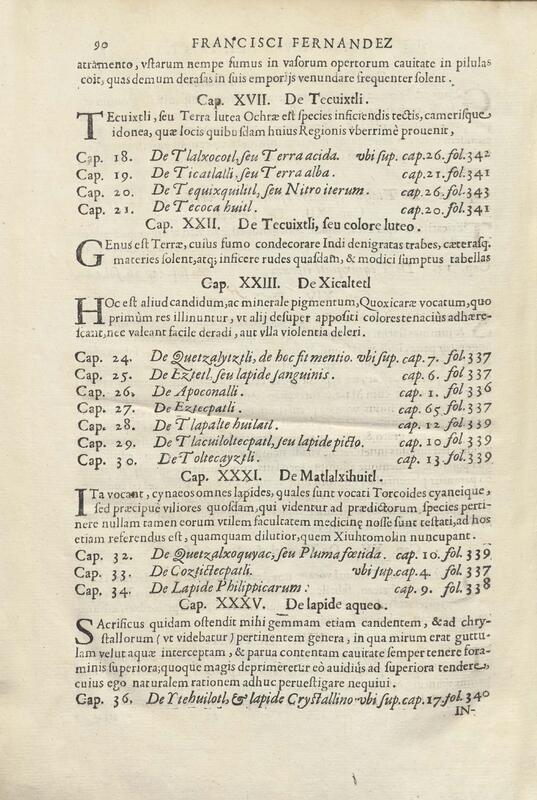 90 FRANCISCI FERNANDEZ
atramento, vstarum nempe fumus in vasorum opertorum cauitate in pilulas
coit, quas demum derasas in suis emporijs venundare frequenter solent.
Cap. XVII. De Tecuixtli.
TEcuixtli, seu Terra lutea Ochræ est species inficiendis tectis, camerisque
idonea, quæ locis quibusdam huius Regionis vberrimè prouenit,
Cap. 18. De Tlalxocotl, seu Terra acida. vbi sup. cap. 26. fol. 342
Cap. 19. De Ticatlalli, seu Terra alba. cap. 21. fol. 341
Cap. 20. De Tequixquilitl, seu Nitro iterum. cap. 26. fol. 343
Cap. 21. De Tecoca huitl. cap. 20. fol. 341
Cap. XXII. De Tecuixtli, seu colore luteo.
GEnus est Terræ, cuius fumo condecorare Indi denigratas trabes, cæterasq.
materies solent, atq; inficere rudes quasdam, & modici sumptus tabellas
Cap. XXIII. De Xicaltetl
HOc est aliud candidum, ac minerale pigmentum, Quoxicaræ vocatum, quo
primùm res illinuntur, vt alij desuper appositi colores tenaciùs adhære-
scant, nec valeant facile deradi, aut vlla violentia deleri.
Cap. 24. De Quetzalytztli, de hoc fit mentio. vbi sup. cap. 7. fol. 337
Cap. 25. De Eztetl. seu lapide sanguinis. cap. 6. fol. 337
Cap. 26. De Apoconalli. cap. 1. fol. 336
Cap. 27. De Eztecpatli. cap. 65 fol. 337
Cap. 28. De Tlapalte huilatl. cap. 12 fol. 339
Cap. 29. De Tlacuiloltecpatl, seu lapide picto. cap. 10 fol. 339
Cap. 30. De Toltecayztli. cap. 13. fol. 339
Cap. XXXI. De Matlalxihuitl.
ITa vocant, cynaeos omnes lapides, quales sunt vocati Torcoides cyaneique,
sed præcipuè viliores quosdam, qui videntur ad prædictorum species perti-
nere nullam tamen eorum vtilem facultatem medicinę nosse sunt testati, ad hos
etiam referendus est, quamquam dilutior, quem Xiuhtomolkn nuncupant.
Cap. 32. De Quetzalxoquyac, seu Pluma fœtida. cap. 10. fol. 339
Cap. 33. De Coztictecpatli. vbi sup. cap. 4. fol. 337
Cap. 34. De Lapide Philippicarum. cap. 9. fol. 338
Cap. XXXV. De lapide aqueo.
SAcrificus quidam ostendit mihi gemmam etiam candentem, & ad chry-
stallorum (vt videbatur) pertinentem genera, in qua mirum erat guttu-
lam velut aquæ interceptam, & parua contentam cauitate semper tenere fora-
minis superiora; quoque magis deprimeretur eò auidiùs ad superiora tendere,
cuius ego naturalem rationem adhuc peruestigare nequiui.
Cap. 36. De Ytehuilotl, & lapide Crystallino vbi sup. cap. 17. fol. 340
IN-